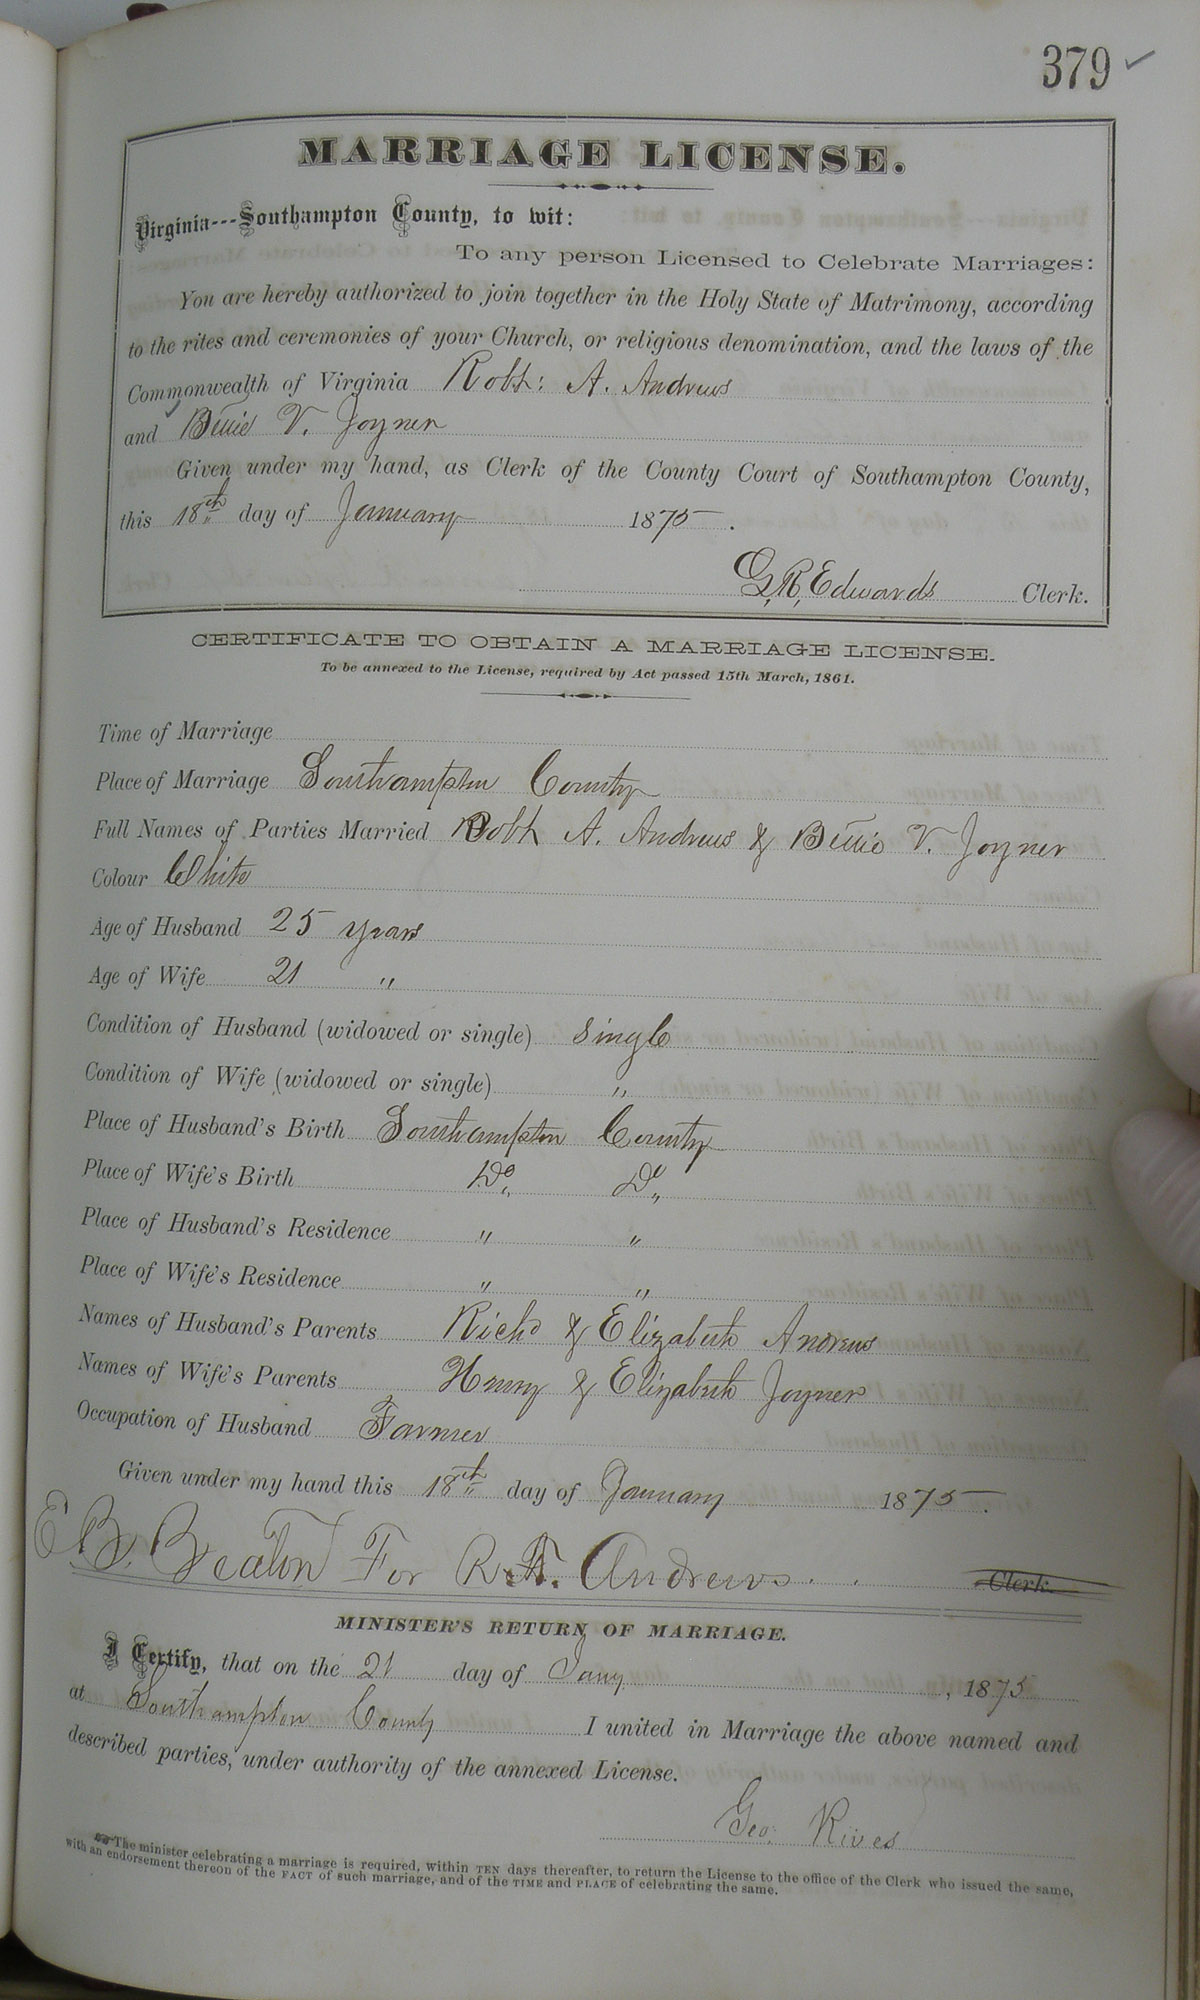 379 ✓
MARRIAGE LICENSE.
Virginia---Southampton County, to wit:
To any person Licensed to Celebrate Marriages:
You are hereby authorized to join together in the Holy State of Matrimony, according
to the rites and ceremonies of your Church, or religious denomination, and the laws of the
Commonwealth of Virginia Robt: A. Andrews
and Bettie V. Joyner
Given under my hand, as Clerk of the County Court of Southampton County,
this 18th day of January 1875.
G. R. Edwards Clerk.
CERTIFICATE TO OBTAIN A MARRIAGE LICENSE.
To be annexed to the License, required by Act passed 15th March, 1861.
Time of Marriage
Place of Marriage Southampton County
Full Names of Parties Married Robt A. Andrews & Bettie V. Joyner
Colour White
Age of Husband 25 years
Age of Wife 21 "
Condition of Husband (widowed or single) Single
Condition of Wife (widowed or single) "
Place of Husband's Birth Southampton County
Place of Wife's Birth Do Do
Place of Husband's Residence " "
Place of Wife's Residence " "
Names of Husband's Parents Richd & Elizabeth Andrews
Names of Wife's Parents Henry & Elizabeth Joyner
Occupation of Husband Farmer
Given under my hand this 18th day of January 1875.
E. B. Beaton For R. A. Andrews. Clerk.
MINISTER'S RETURN OF MARRIAGE.
I Certify, that on the 21 day of Jany, 1875
at Southampton County I united in Marriage the above named and
described parties, under authority of the annexed License.
Geo: Rives
The minister celebrating a marriage is required, within TEN days thereafter, to return the License to the office of the Clerk who issued the same,
with an endorsement thereon of the FACT of such marriage, and of the TIME and PLACE of celebrating the same.